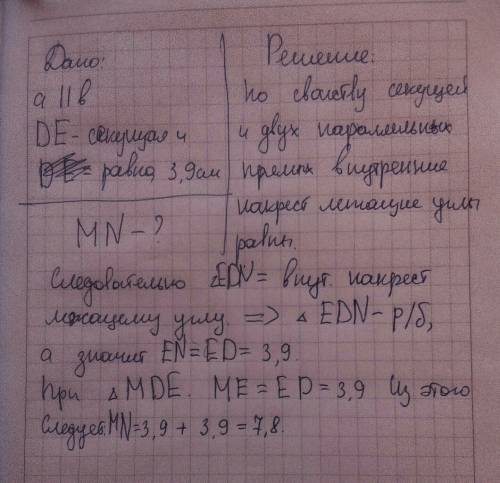 Дано:
a || в
DE - секущая и
равна 3,9см
MN - ?
Решение:
по свойству секущей
и двух параллельных
прямых внутренние
накрест лежащие углы
равны.
Следовательно ∠EDN = внут. накрест
лежащему углу. => △ EDN - р/б,
а значит EN = ED = 3,9.
При △ MDE. ME = ED = 3,9 Из этого
следует: MN = 3,9 + 3,9 = 7,8.